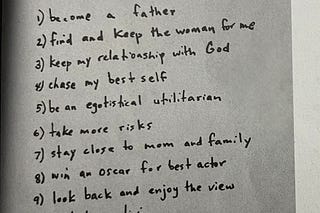 1) become a father
2) find and keep the woman for me
3) keep my relationship with God
4) chase my best self
5) be an egotistical utilitarian
6) take more risks
7) stay close to mom and family
8) win an oscar for best actor
9) look back and enjoy the view